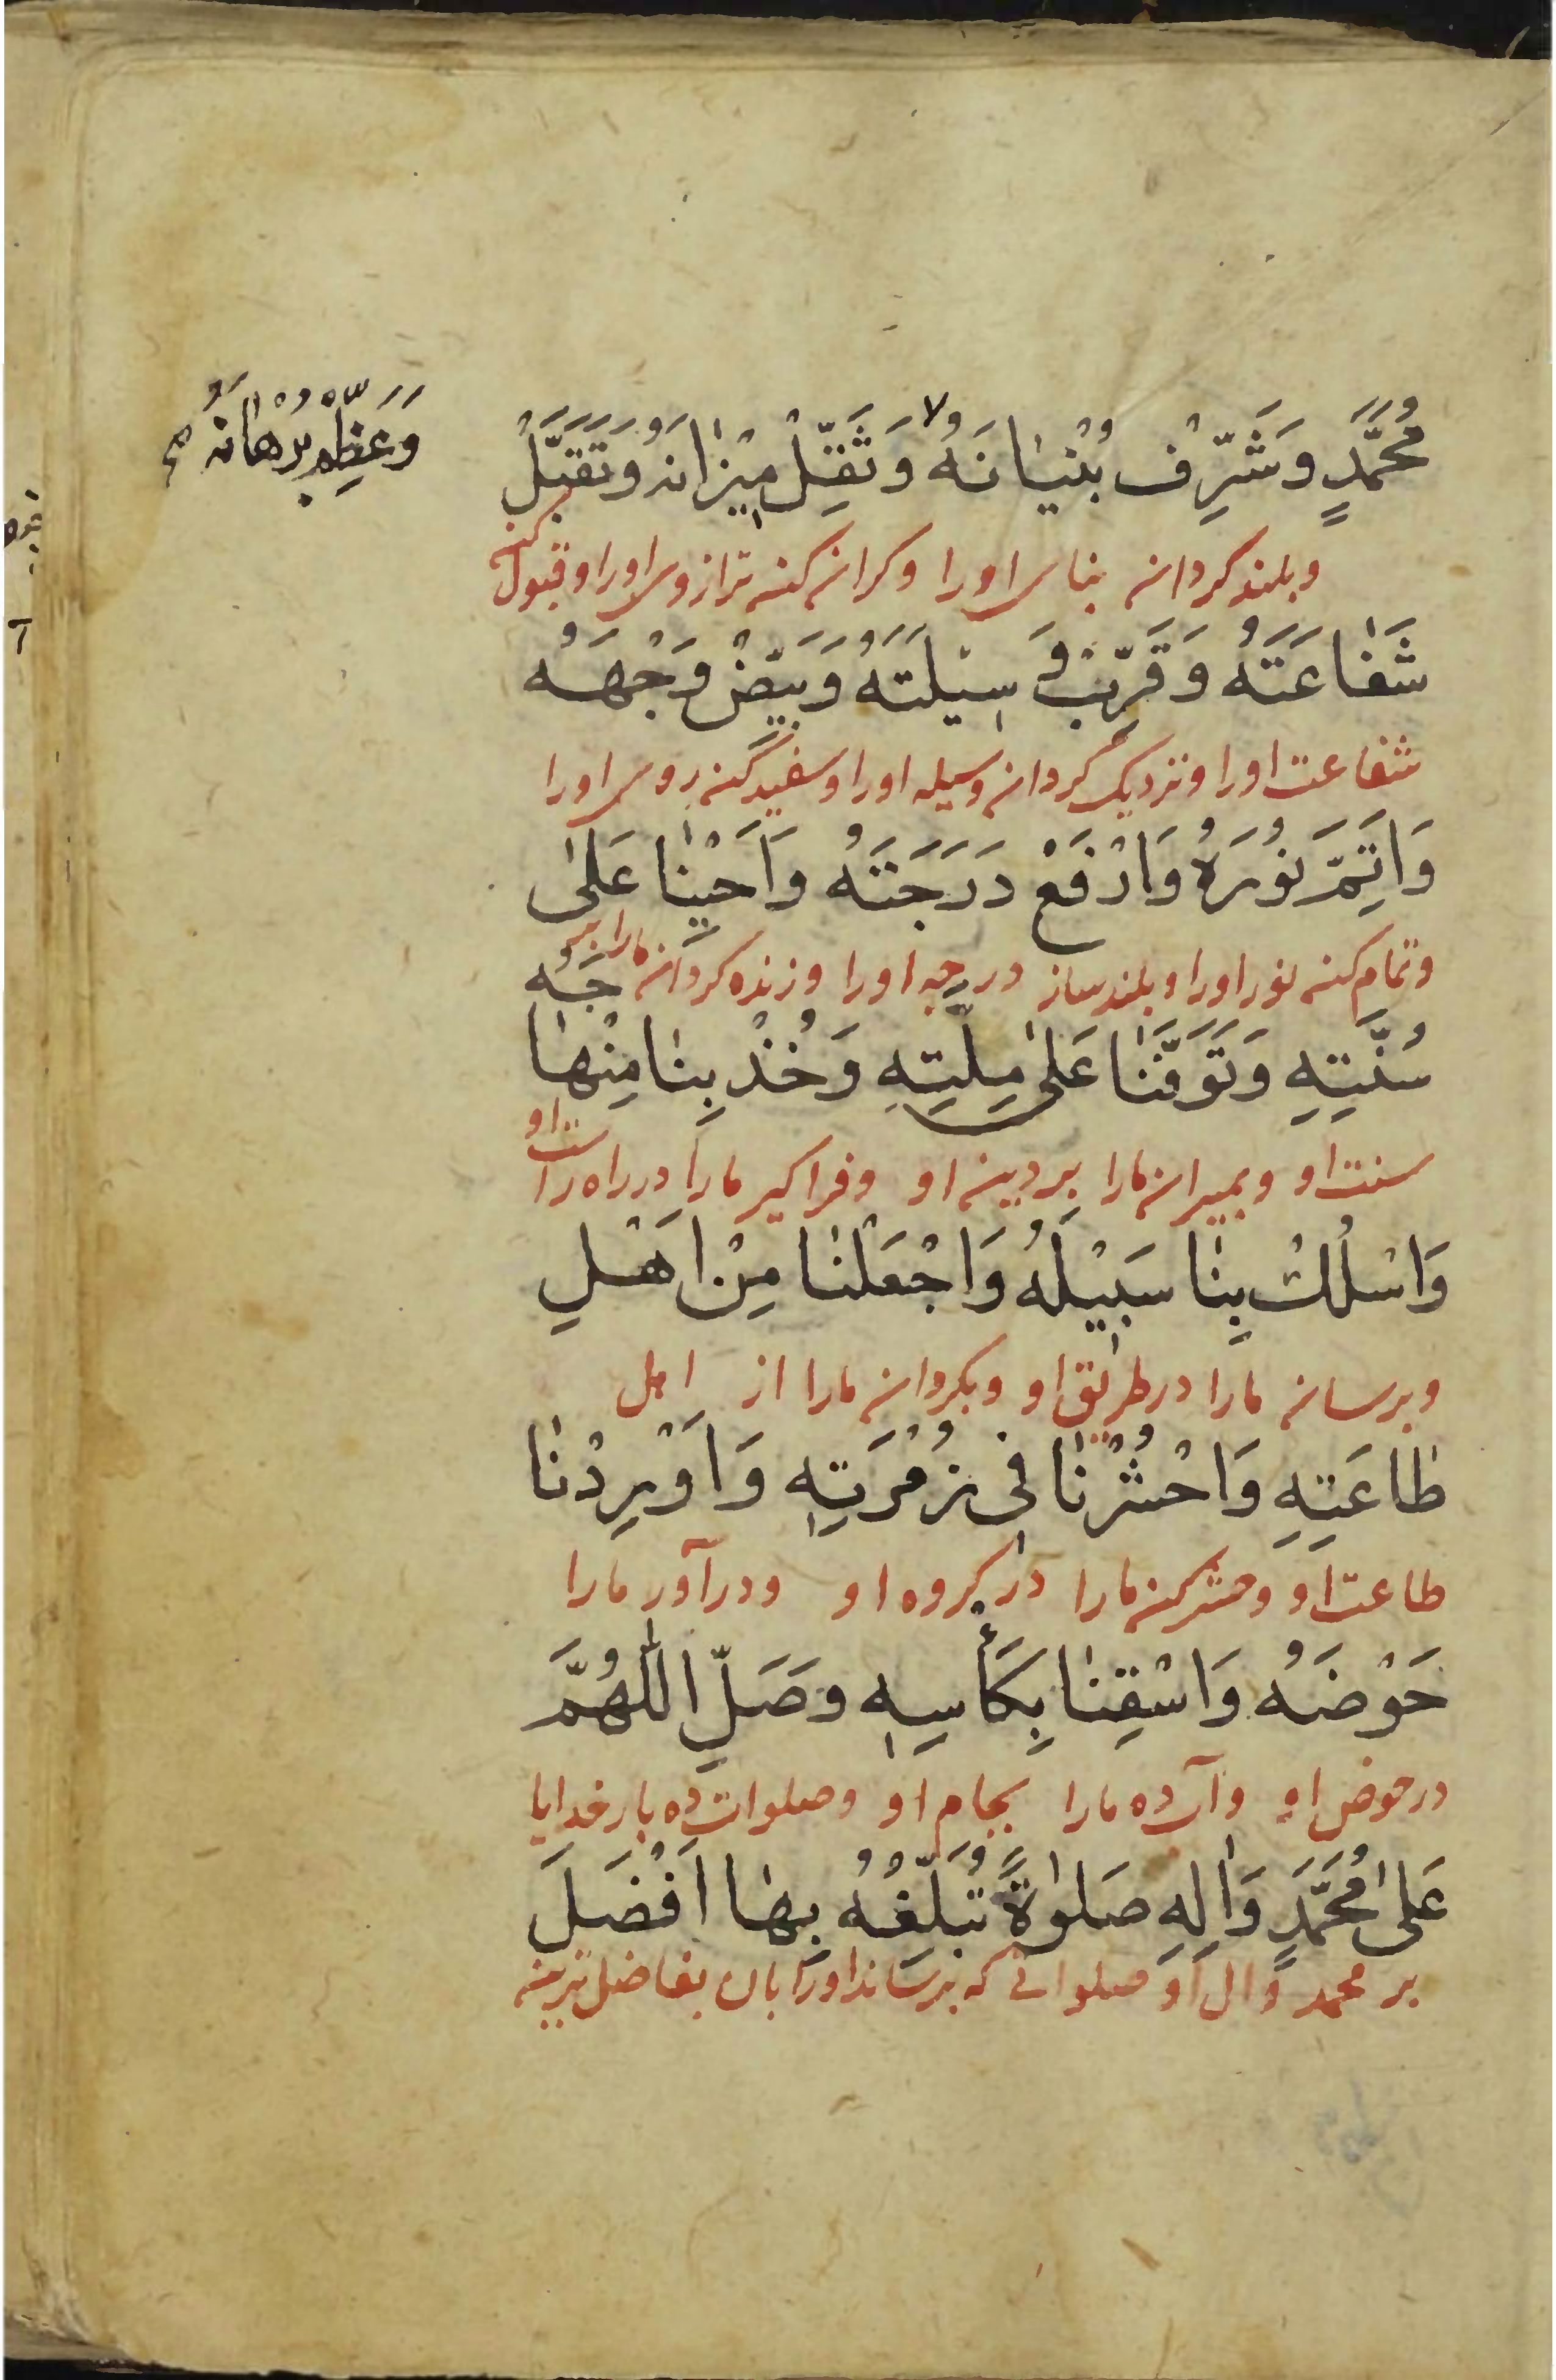 مُحَمَّدٍ وَشَرِّفْ بُنْيَانَهُ وَثَقِّلْ مِيْزَانَهُ وَتَقَبَّلْ
وَعَظِّمْ بُرْهَانَهُ
وبلند کردان بنای اورا وکران کن ترازوی اورا وقبول کن
شَفَاعَتَهُ وَقَرِّبْ وَسِيْلَتَهُ وَبَيِّضْ وَجْهَهُ
شفاعت اورا ونزدیک گردان وسیله اورا وسفید کن روی اورا
وَاَتِمَّ نُوْرَهُ وَارْفَعْ دَرَجَتَهُ وَاَحْيِنَا عَلَى
وتمام کن نور اورا وبلند ساز درجه اورا وزنده کردان مارا بر
سُنَّتِهِ وَتَوَفَّنَا عَلَى مِلَّتِهِ وَخُذْ بِنَا مِنْهَاجَهُ
سنت او وبمیران مارا بر دین او وفراکیر مارا در راه راست او
وَاسْلُكْ بِنَا سَبِيْلَهُ وَاجْعَلْنَا مِنْ اَهْلِ
وبرسان مارا در طریق او وبکردان مارا از اهل
طَاعَتِهِ وَاحْشُرْنَا فِي زُمْرَتِهِ وَاَوْرِدْنَا
طاعت او وحشر کن مارا در کروه او ودرآور مارا
حَوْضَهُ وَاسْقِنَا بِكَأْسِهِ وَصَلِّ اللّٰهُمَّ
در حوض او وآب ده مارا بجام او وصلوات ده بار خدایا
عَلَى مُحَمَّدٍ وَاٰلِهِ صَلٰوةً تُبَلِّغُهُ بِهَا اَفْضَلَ
بر محمد وال او صلواتی که برساند اورا بان بفاضل ترین